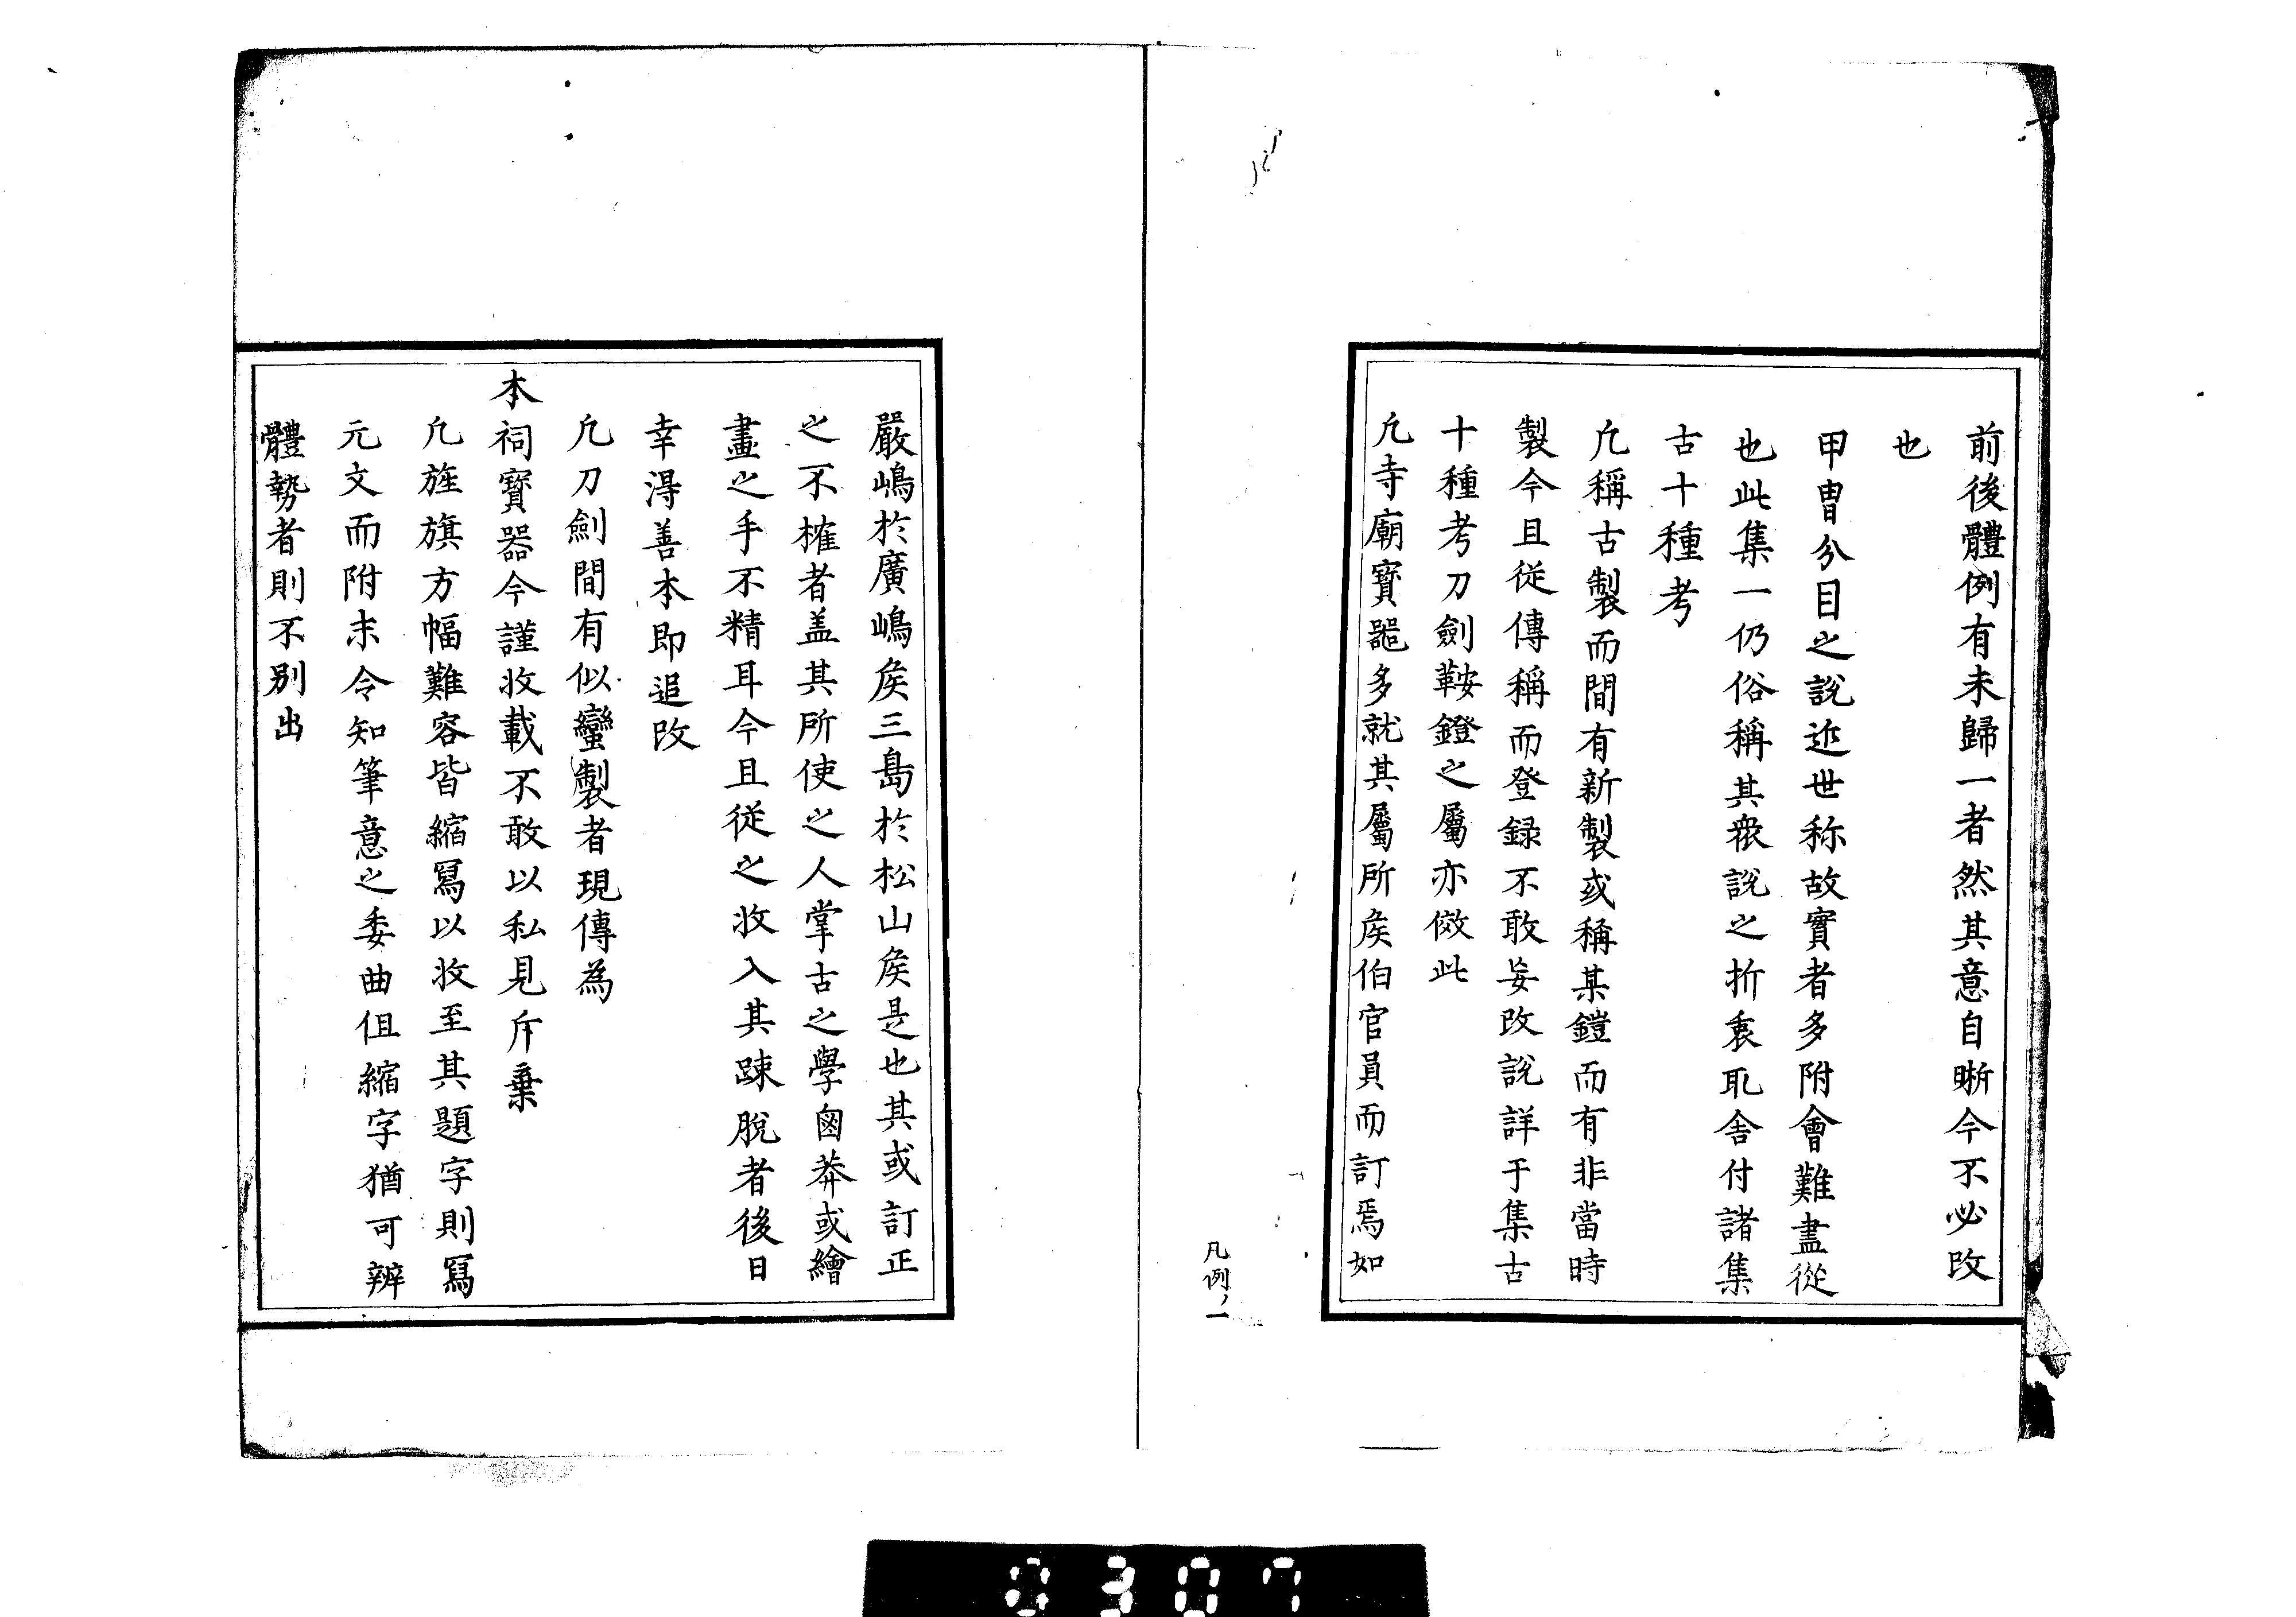 前後體例有未歸一者然其意自晰今不必改
也
甲冑分目之說近世称故實者多附會難盡從
也此集一仍俗稱其衆說之折衷取舍付諸集
古十種考
凢稱古製而間有新製或稱某鎧而有非當時
製今且従傳稱而登録不敢妄改說詳于集古
十種考刀劍鞍鐙之屬亦倣此
凢寺廟寳噐多就其屬所矦伯官員而訂焉如
凡例、一
嚴嶋於廣嶋矦三島於松山矦是也其或訂正
之不榷者盖其所使之人掌古之學鹵莽或繪
畫之手不精耳今且従之收入其踈脫者後日
幸淂善本即追改
凢刀劍間有似蠻製者現傳為
本祠寳器今謹收載不敢以私見斥棄
凢旌旗方幅難容皆縮冩以收至其題字則冩
元文而附末令知筆意之委曲但縮字猶可辨
體勢者則不別出
0307